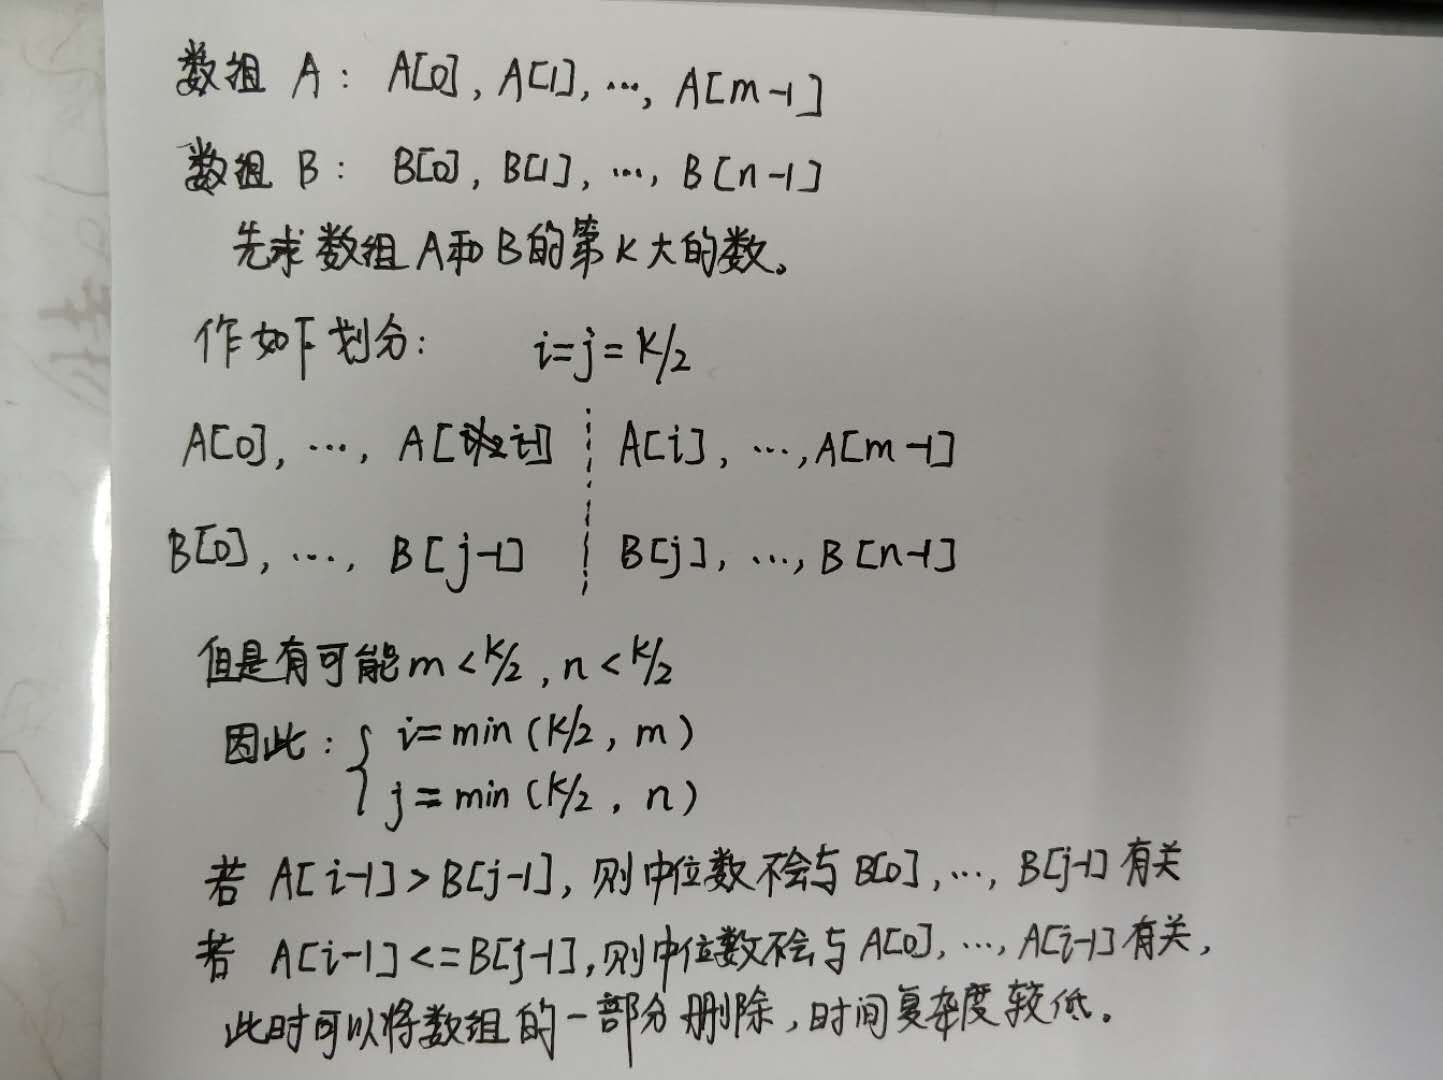 数组 A: A[0], A[1], …, A[m-1]
数组 B: B[0], B[1], …, B[n-1]
先求数组A和B的第K大的数。
作如下划分: i=j=K/2
A[0], …, A[i-1] A[i], …, A[m-1]
B[0], …, B[j-1] B[j], …, B[n-1]
但是有可能m<K/2, n<K/2
因此: { i=min(K/2, m)
j=min(K/2, n)
若 A[i-1]>B[j-1], 则中位数不会与B[0], …, B[j-1]有关
若 A[i-1]<=B[j-1], 则中位数不会与A[0], …, A[i-1]有关,
此时可以将数组的一部分删除,时间复杂度较低。